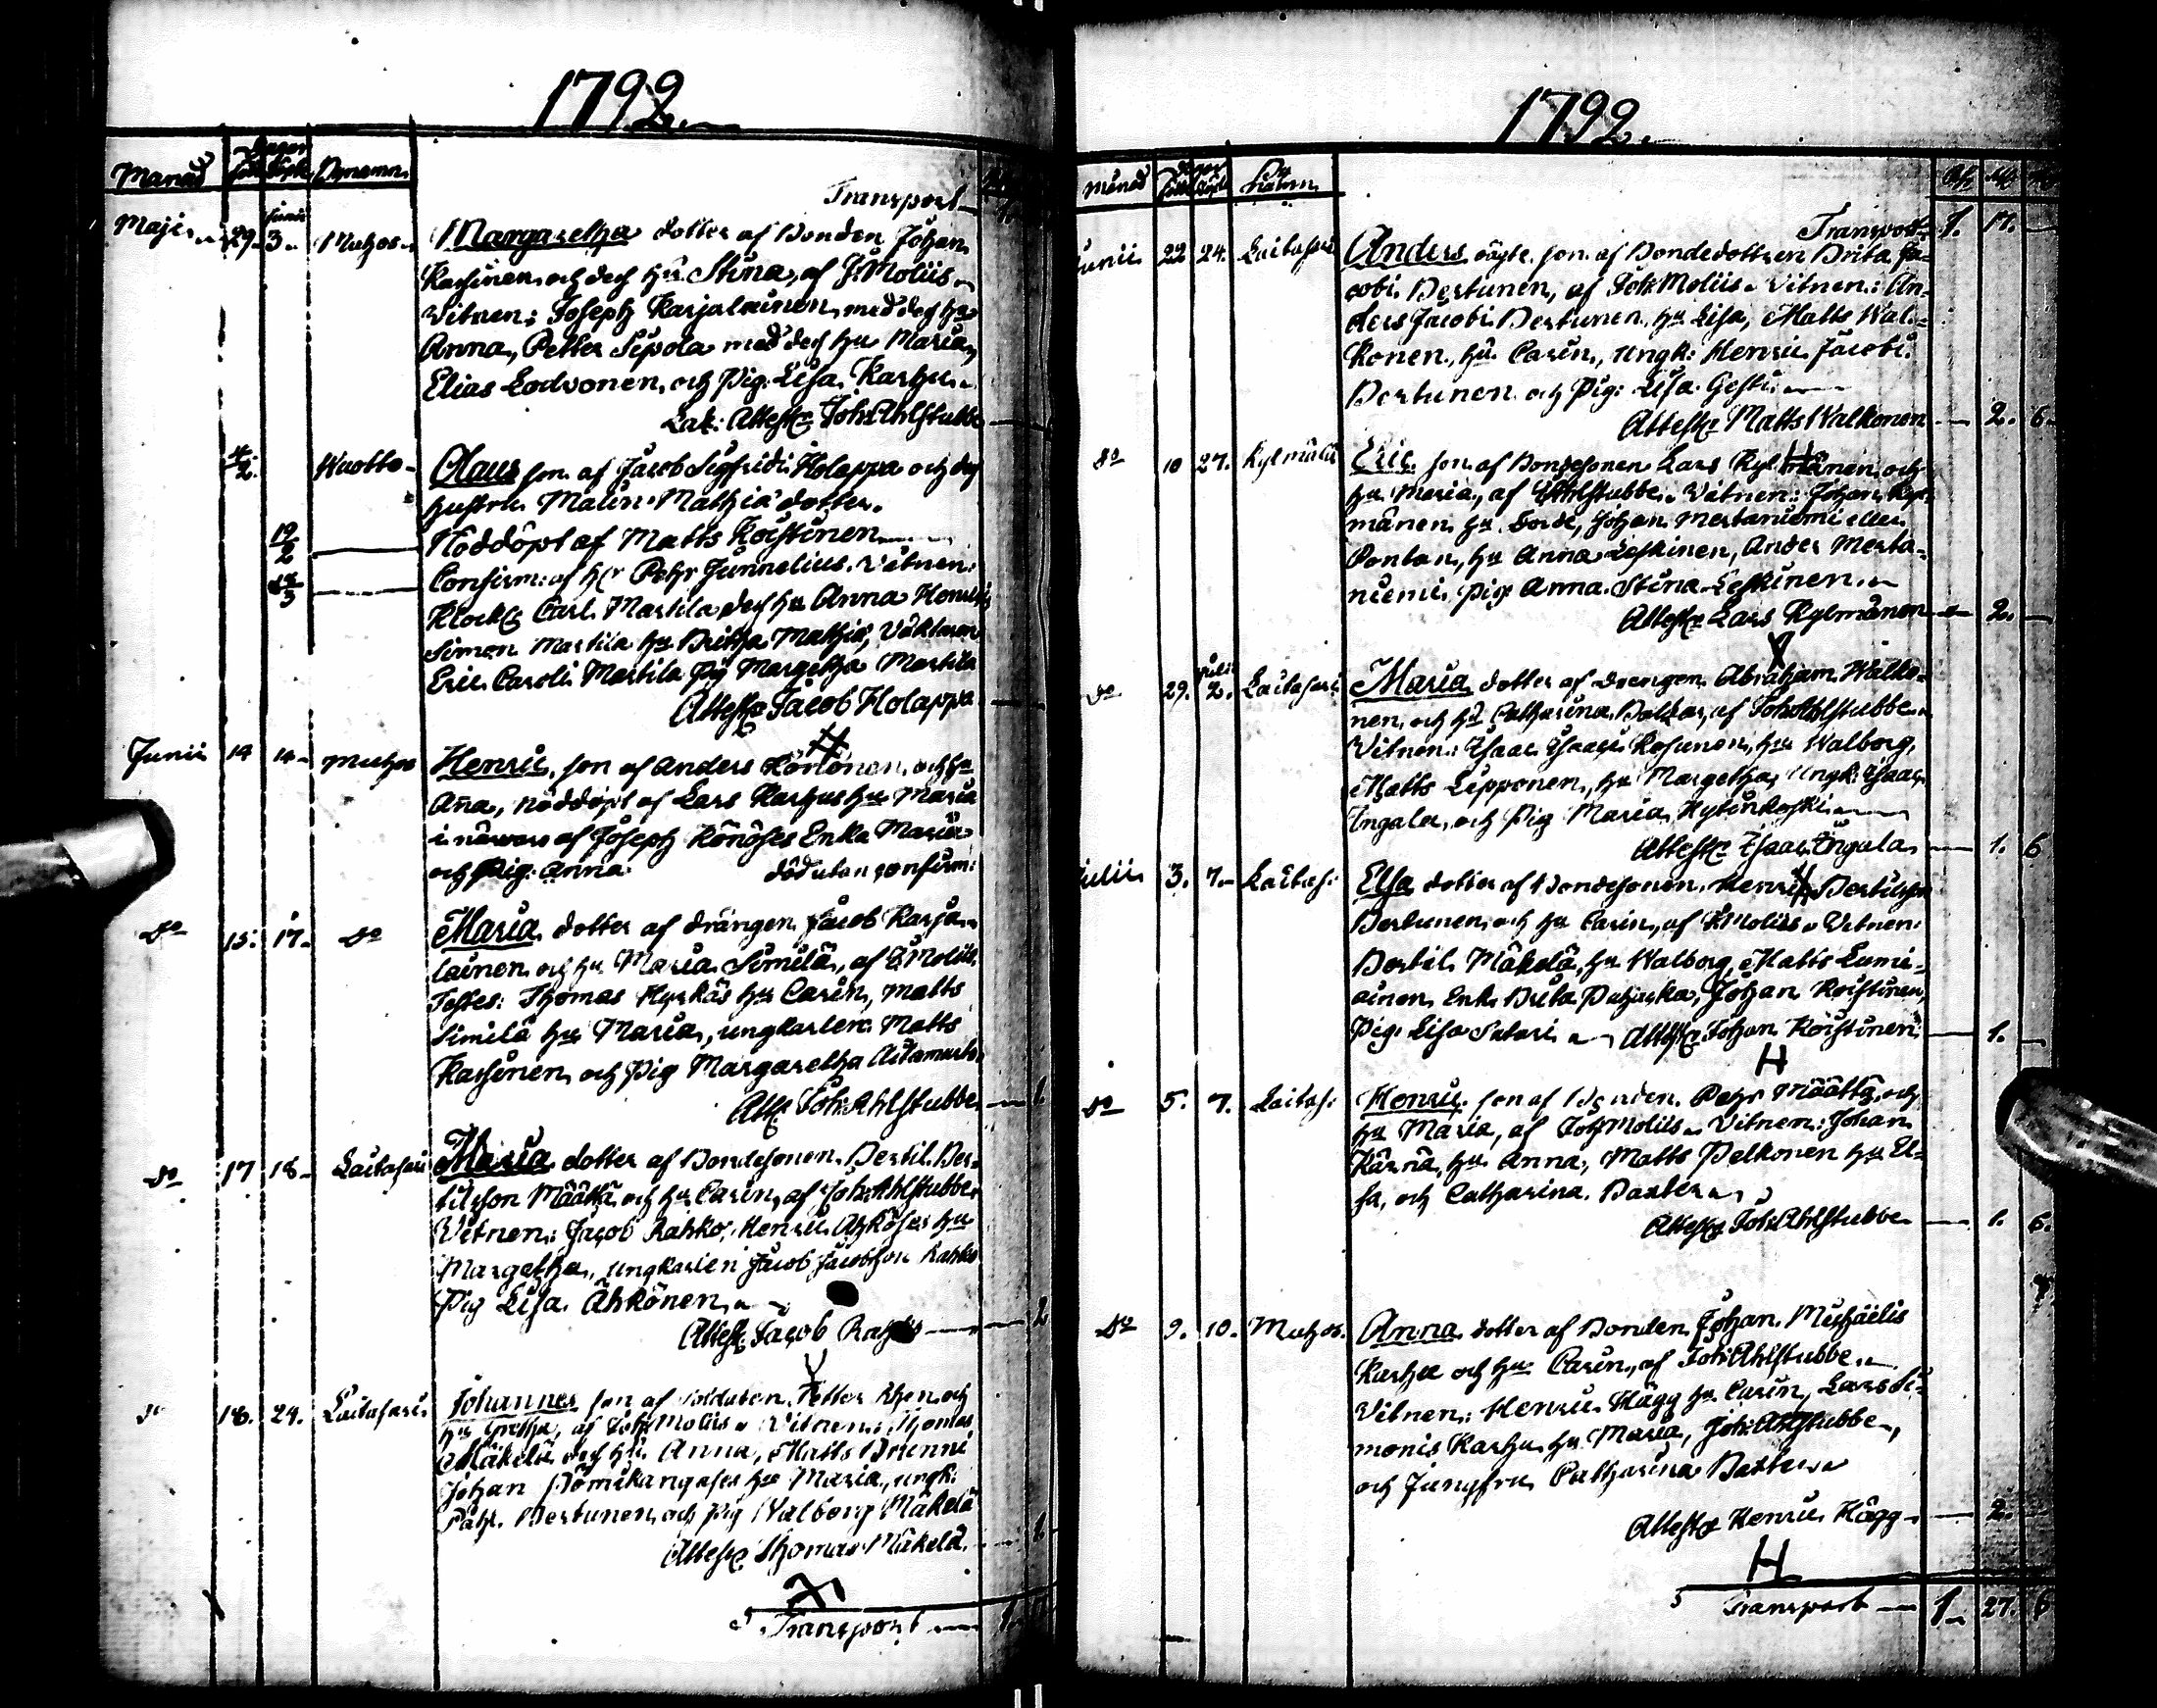 1792.
Månad Dagar Född Döpt Bynamn
Transport
Maji 29. Junii 3. Muhos Margaretha dotter af Bonden Johan
Karhinen och dess hu Stina, af J. Molijs
Vitnen: Joseph Karjalainen med dess hu
Anna, Petter Sipola med dess hu Maria,
Elias Lodvonen, och Pig: Lisa Karhu.
Lak: Attest Joh: Ahlstubbe
4/2. Wuotto Olaus son af Jacob Sigfridi Holappa och dess
hustru Malin Mathiæ dotter.
19/2 Nöddöpt af Matts Koistinen
/3 Confirm: af Hr Pehr Junnelius. Vitnen:
Klock: Carl Martila dess hu Anna Henrici
Simon Martila hu Britha Mathiæ, Väktaren
Eric Caroli Martila Pig Margetha Martila
Attest Jacob Holappa
Junii 14 14 Muhos Henric son af Anders Körkönen och hu
Anna, nöddöpt af Lars Karhus hu Maria
i närwaro af Joseph Könöses Enka Maria
och Pig: Anna. död utan confirm:
Do 15. 17. Do Maria dotter af drängen Jacob Karja-
lainen och hu Maria Similä, af J. Molijs.
Testes: Thomas Hyrkäs hu Carin, Matts
Similä hu Maria, ungkarlen Matts
Karhinen och Pig Margaretha
Att: Joh: Ahlstubbe 1.
Do 17 18 Laitasari Maria dotter af Bondesonen Bertil Ber-
tilsson Määttä och hu Carin, af Joh: Ahlstubbe.
Vitnen: Jacob Rahko, Henric Ahköses hu
Margetha, ungkarlen Jacob Jacobsson Rahko
Pig Lisa Ahkönen.
Attest Jacob Rahko
Do 18. 24. Laitasari Johannes son af Soldaten Petter Rhen och
hu Gretha, af Joh: Molijs. Vitnen: Thomas
Mäkelä dess hu Anna, Matts
Johan hu Maria, ungk:
Pähr Bertunen och Pig Walborg Mäkelä
Attest Thomas Mäkelä. 1.
5 Transport 1.
1792.
Månad Dagar Född Döpt By namn
Transport 1. 17.
Junii 22 24. Laitasari Anders oägte son af Bondedottren Brita Ja-
cobi Bertunen, af Joh: Molijs. Vitnen: An-
ders Jacobi Bertunen, hu Lisa, Matts Wal-
konen, hu Carin, ungk: Henric Jacobi
Bertunen och Pig: Lisa Gesti.
Attest Matts Walkonen 2. 6.
Do 10 27. Kylmälä Eric son af Bondesonen Lars Kylmänen och
hu Maria, af Ahlstubbe. Vitnen: Johan Kyl-
mänen hu Johan Mertaniemi eller
Pontan, hu Anna Leskinen, Anders Merta-
niemi, Pig Anna Stina Leskinen.
Attest Lars Kylmänen 2.
Do 29. Julii 2. Laitasari Maria dotter af drengen Abraham Walko-
nen och hu Catharina af Joh: Ahlstubbe.
Vitnen: Isaac Isacsson Kosunen, hu Walborg,
Matts Lipponen, hu Margetha, Ungk: Isaac
Ungala, och Pig Maria Hytinkoski.
Attest Isaac Ungala 1. 6
Julii 3. 7. Laitas: Elsa dotter af Bondesonen Henric Bertilsson
Bertunen och hu Carin, af J. Molijs. Vitnen:
Bertil Mäkelä, hu Walborg, Matts Lumi-
ainen, Enk: Brita Johan Koistinen,
Pig: Lisa Attest Johan Koistinen 1.
Do 5. 7. Laitas: Henric son af Bonden Pehr Määttä och
hu Maria, af Joh Molijs. Vitnen: Johan
Kärnä, hu Anna, Matts Pelkonen hu El-
sa, och Catharina Baxter.
Attest Joh: Ahlstubbe 1. 6.
Do 9. 10. Muhos. Anna dotter af Bonden Johan Michaelis
Karhu och hu Carin, af Joh: Ahlstubbe.
Vitnen: Henric Hägg hu Carin, Lars Si-
monis Karhu hu Maria, Joh: Ahlstubbe,
och Jungfru Catharina Baxter.
Attest Henric Hägg 2.
5 Transport 1. 27. 6